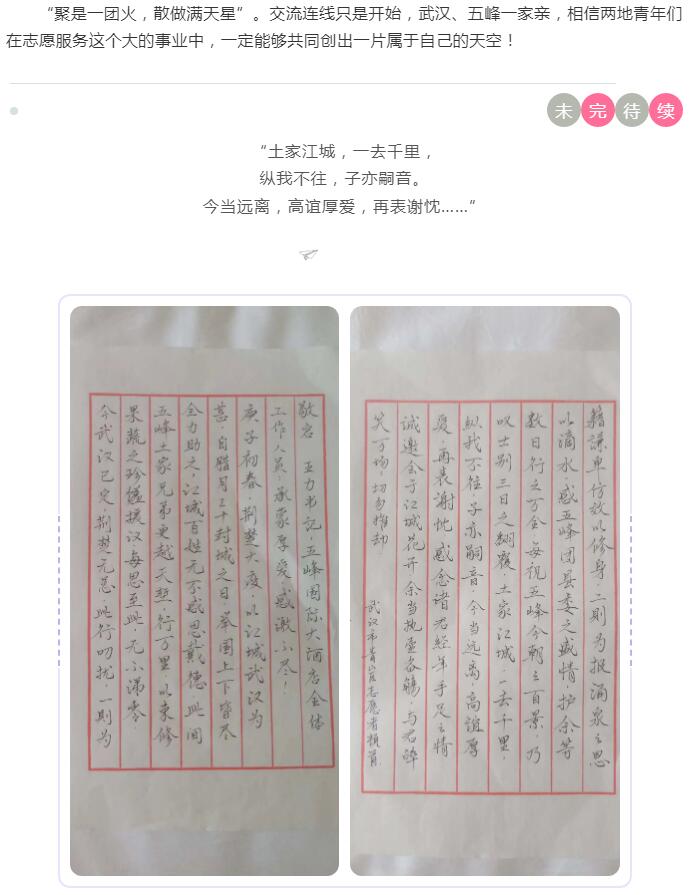 “聚是一团火，散做满天星”。交流连线只是开始，武汉、五峰一家亲，相信两地青年们
在志愿服务这个大的事业中，一定能够共同创出一片属于自己的天空！
未完待续
“土家江城，一去千里，
纵我不往，子亦嗣音。
今当远离，高谊厚爱，再表谢忱……”
敬启 王力书记，五峰国际大酒店全体
工作人员，承蒙厚爱，感激不尽！
庚子初春，荆楚大疫，以江城武汉为
甚，自腊月三十封城之日，举国上下皆尽
全力助之，江城百姓无不感恩戴德，此间
五峰土家兄弟更越天堑，行万里，以束修
果蔬之珍馐援汉，每思至此，无不涕零，
今武汉已定，荆楚无恙，此行叨扰，一则为
籍谦卑仿效以修身，二则为报涌泉之恩
以滴水，感五峰团县委之盛情，护余等
数日行之万全，每祝五峰今朝之百景，乃
叹士别三日之翻覆，土家江城，一去千里，
纵我不往，子亦嗣音，今当远离，高谊厚
爱，再表谢忱，感念诸君经年手足之情
诚邀会于江城花开，余当执壶备觞，与君醉
笑万场，切勿推却
武汉市青宫志愿者顿首